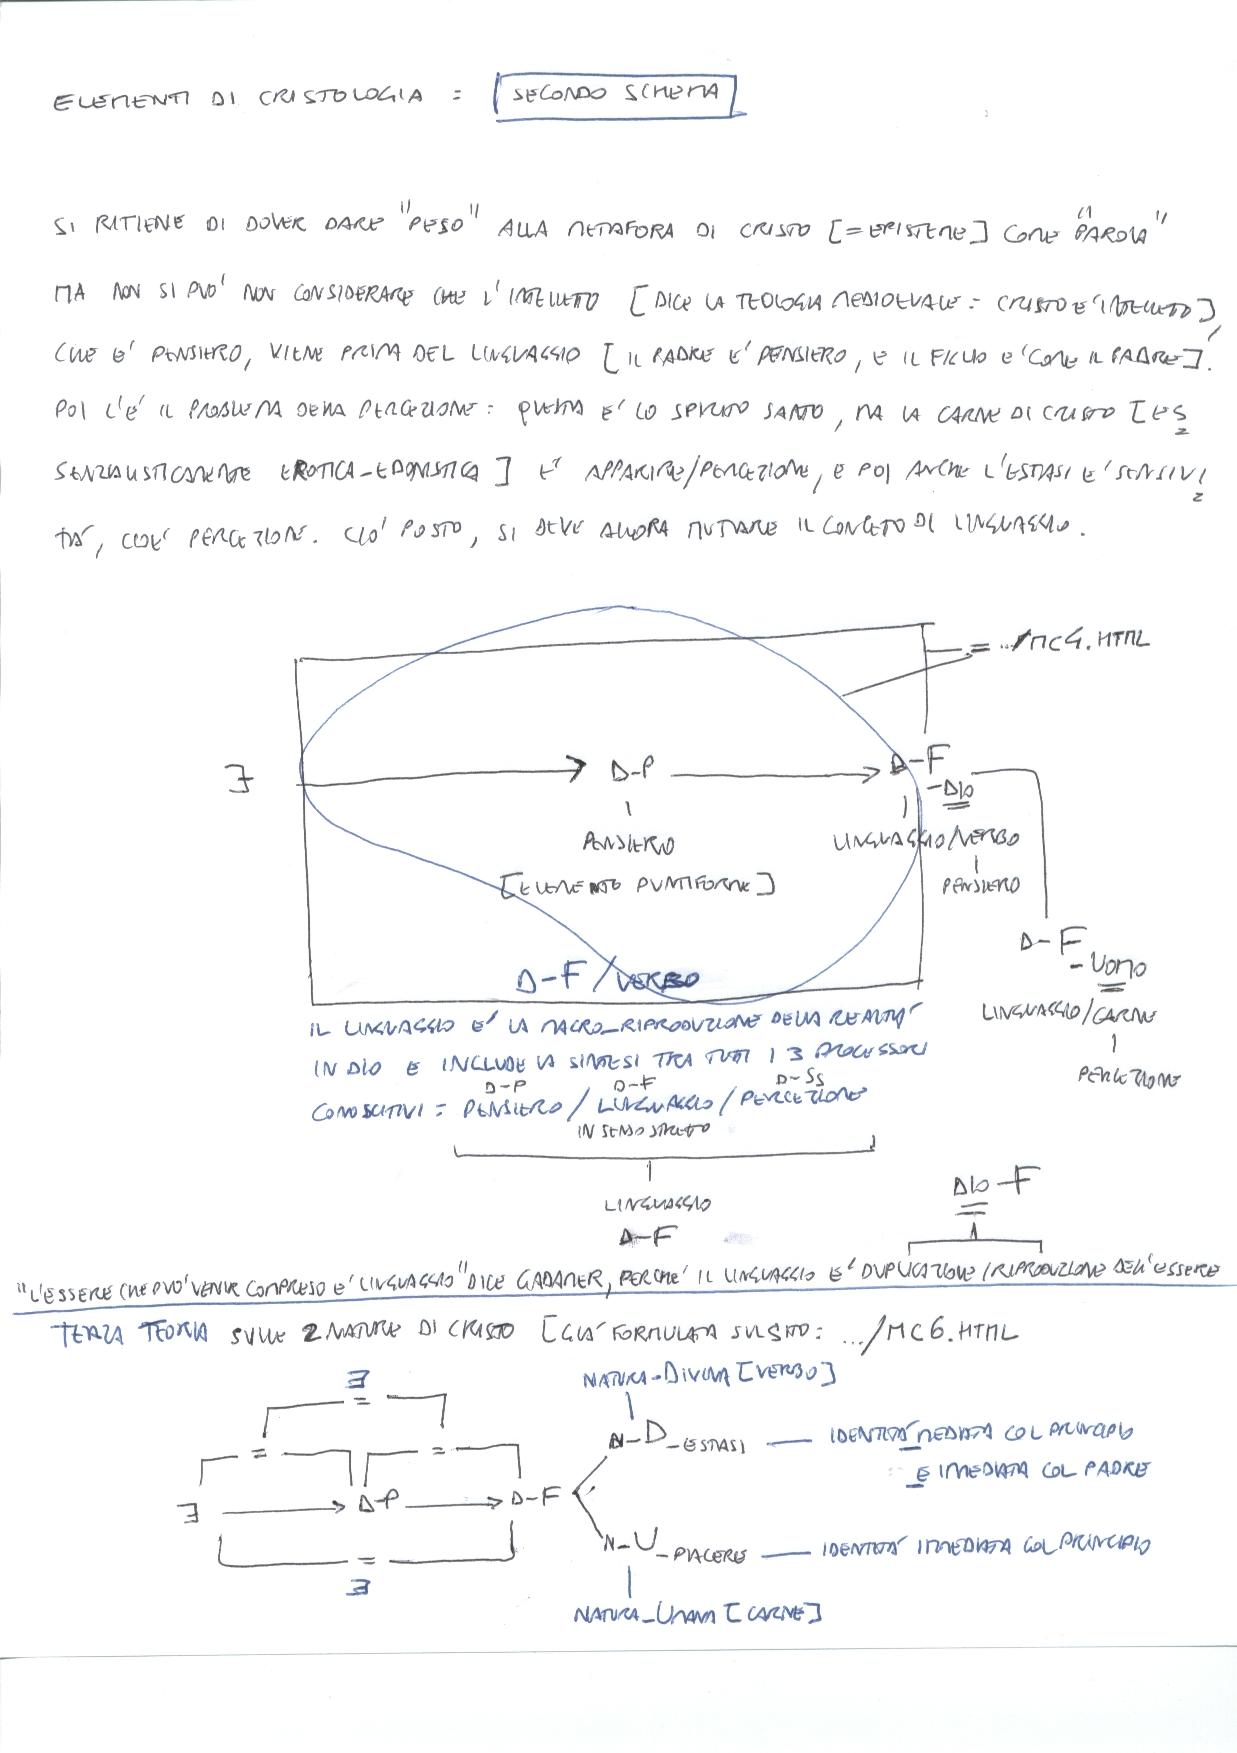 ELEMENTI DI CRISTOLOGIA = [SECONDO SCHEMA]
SI RITIENE DI DOVER DARE "PESO" ALLA METAFORA DI CRISTO [=EPISTEME] COME "PAROLA"
MA NON SI PUO' NON CONSIDERARE CHE L'INTELLETO [DICE LA TEOLOGIA MEDIOEVALE = CRISTO E' INTELLETO],
CHE E' PENSIERO, VIENE PRIMA DEL LINGUAGGIO [IL PADRE E' PENSIERO, E IL FIGLIO E' COME IL PADRE].
POI C'E' IL PROBLEMA DELLA PERCEZIONE: QUESTA E' LO SPIRITO SANTO, MA LA CARNE DI CRISTO [ES=
SENZIALISTICAMENTE EROTICA-EDONISTICA] E' APPARIRE/PERCEZIONE, E POI ANCHE L'ESTASI E' SENSIVI=
TA', CIOE' PERCEZIONE. CIO' POSTO, SI DEVE ALLORA MUTARE IL CONCETO DI LINGUAGGIO.
= .../MC4.HTML
∃ → D-P → D-F-DIO
PENSIERO
LINGUAGGIO/VERBO
[ELEMENTO PUNTIFORME]
PENSIERO
D-F-UOMO
D-F/VERBO
LINGUAGGIO/CARNE
IL LINGUAGGIO E' LA MACRO-RIPRODUZIONE DELLA REALTA'
IN DIO E INCLUDE LA SINTESI TRA TUTTI I 3 PROCESSORI
PERCEZIONE
D-P D-F D-SS
CONOSCITIVI = PENSIERO / LINGUAGGIO / PERCEZIONE
IN SENSO STRETTO
DIO-F
LINGUAGGIO
D-F
"L'ESSERE CHE PUO' VENIR COMPRESO E' LINGUAGGIO" DICE GADAMER, PERCHE' IL LINGUAGGIO E' DUPLICAZIONE/RIPRODUZIONE DELL'ESSERE
TERZA TEORIA SULLE 2 NATURE DI CRISTO [GIA' FORMULATA SUL SITO: .../MC6.HTML
∃
NATURA-DIVINA [VERBO]
=
N-D-ESTASI — IDENTITA' MEDIATA COL PRINCIPIO
= =
E IMMEDIATA COL PADRE
∃ → D-P → D-F
N-U-PIACERE — IDENTITA' IMMEDIATA COL PRINCIPIO
=
∃
NATURA-UMANA [CARNE]